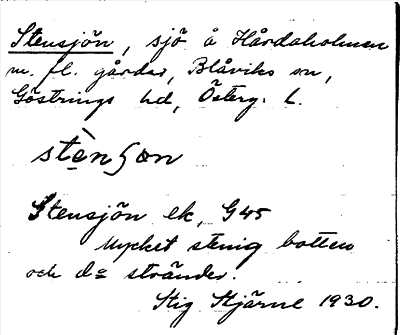 Stensjön, sjö å Hårdaholmen
m. fl. gårdar, Blåviks sn,
Göstrings hd, Österg. L.
stènʃɷn
Stensjön ek, G45
Mycket stenig botten
och do stränder.
Stig Stjärne 1930.